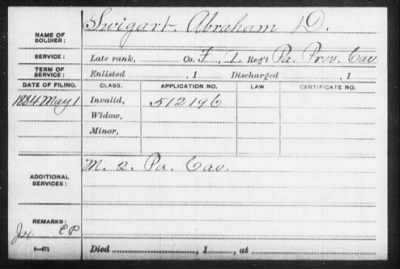 NAME OF SOLDIER: Swigart, Abraham D.
SERVICE: Late rank, Co. F, 1 Reg't Pa. Prov. Cav
TERM OF SERVICE: Enlisted , 1 Discharged , 1
DATE OF FILING. CLASS. APPLICATION NO. LAW. CERTIFICATE NO.
1884 May 1 Invalid, 512196
Widow,
Minor,
ADDITIONAL SERVICES: M. 2. Pa. Cav.
REMARKS:
EP
3-471 Died , 1 , at